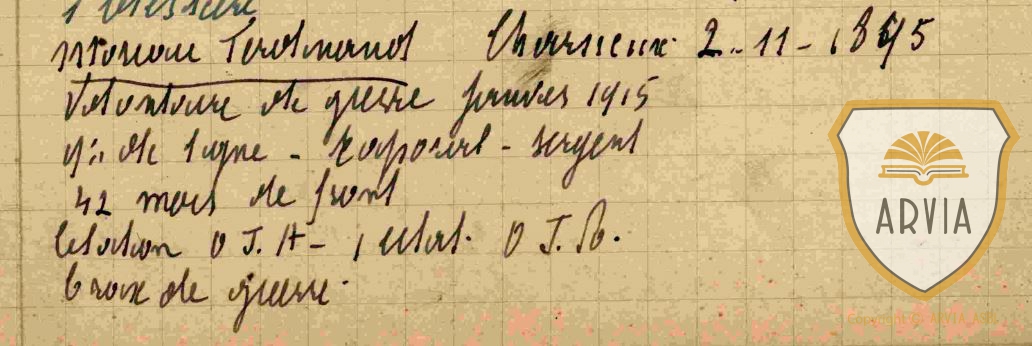 1 blessure
Moreau Ferdinand Charneux 2-11-1895
Volontaire de guerre janvier 1915
9e de ligne - caporal - sergent
42 mois de front
Citation O J. A - 1 citat. O J. D.
Croix de guerre.
ARVIA